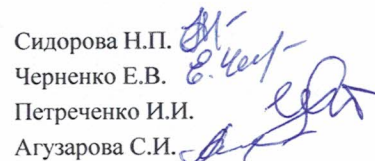 Сидорова Н.П.
Черненко Е.В.
Петреченко И.И.
Агузарова С.И.